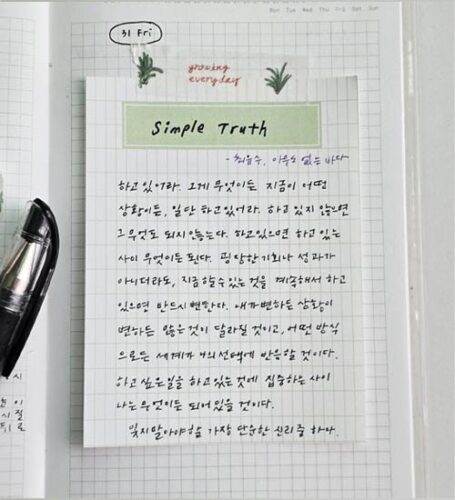 Mon Tue Wed Thu Fri Sat Sun
31 Fri
growing
everyday
Simple Truth
- 최유수, 아무도 없는 바다
하고 있어라. 그게 무엇이든 지금이 어떤
상황이든, 일단 하고 있어라. 하고 있지 않으면
그 무엇도 되지 않는다. 하고있으면 하고 있는
사이 무엇이든 된다. 굉장한 기회나 성과가
아니더라도, 지금 할수 있는 것을 계속해서 하고
있으면 반드시 변한다. 내가 변하든 상황이
변하든 많은 것이 달라질 것이고, 어떤 방식
으로든 세계가 나의 선택에 반응할 것이다.
하고 싶은 일을 하고있는 것에 집중하는 사이
나는 무엇이든 되어 있을 것이다.
잊지말아야할 가장 단순한 진리중 하나.